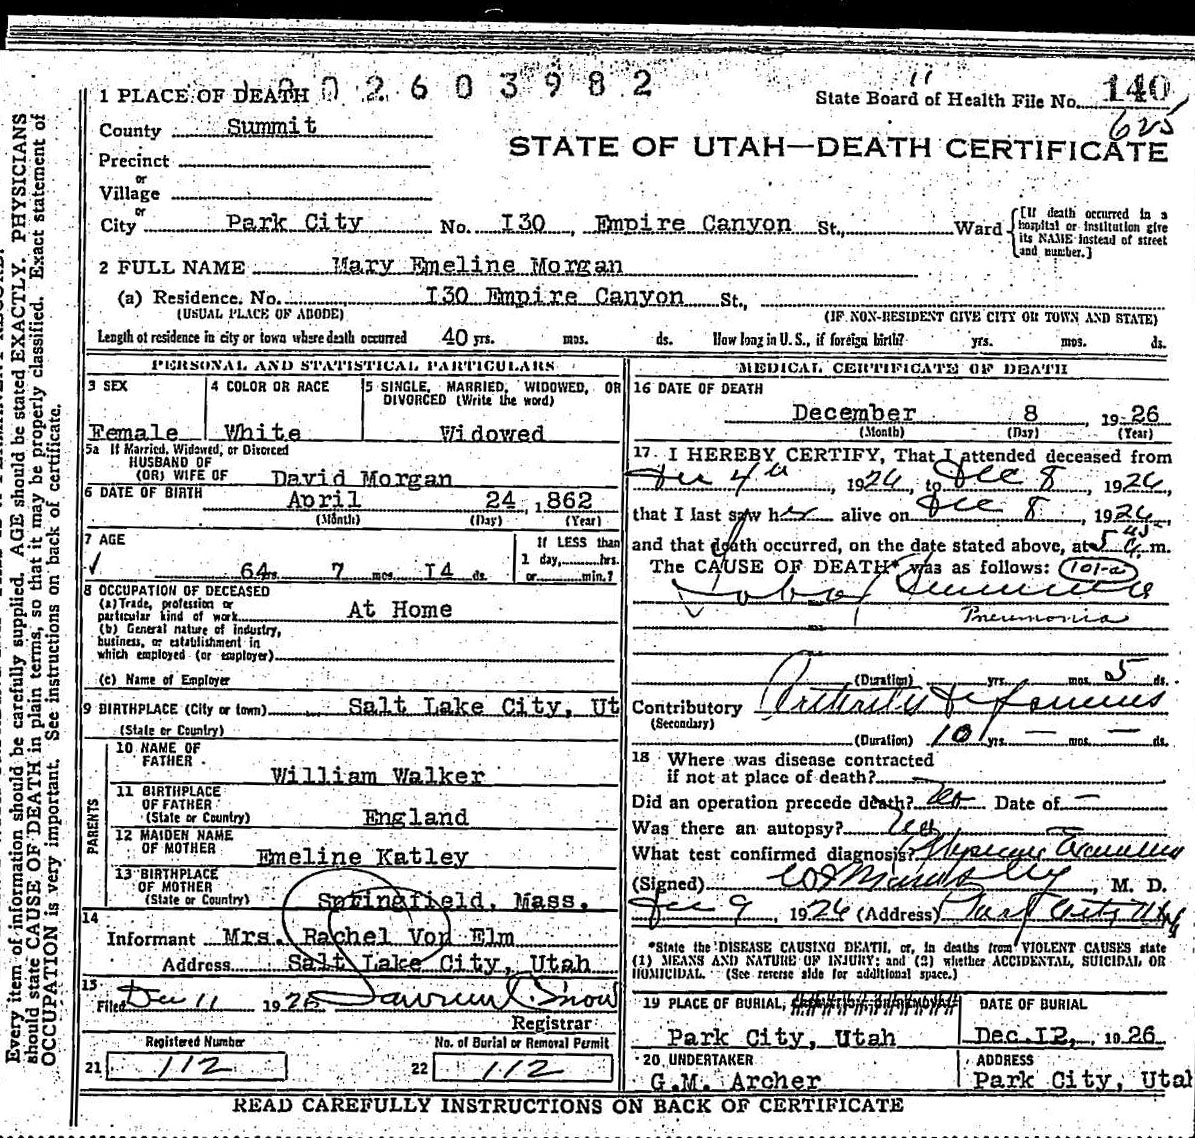 1 PLACE OF DEATH 002603982
State Board of Health File No. 140
625
County Summit
STATE OF UTAH—DEATH CERTIFICATE
Precinct
or
Village
or
City Park City No. I30, Empire Canyon St., Ward
[If death occurred in a hospital or institution give its NAME instead of street and number.]
2 FULL NAME Mary Emeline Morgan
(a) Residence. No. I30 Empire Canyon St.,
(USUAL PLACE OF ABODE) (IF NON-RESIDENT GIVE CITY OR TOWN AND STATE)
Length of residence in city or town where death occurred 40 yrs. mos. ds. How long in U. S., if foreign birth? yrs. mos. ds.
PERSONAL AND STATISTICAL PARTICULARS
3 SEX
Female
4 COLOR OR RACE
White
5 SINGLE, MARRIED, WIDOWED, OR DIVORCED (Write the word)
Widowed
5a If Married, Widowed, or Divorced
HUSBAND OF
(OR) WIFE OF David Morgan
6 DATE OF BIRTH April 24, 1862
(Month) (Day) (Year)
7 AGE
64 yrs. 7 mos. I4 ds.
If LESS than
1 day, hrs.
or min.?
8 OCCUPATION OF DECEASED
(a) Trade, profession or
particular kind of work At Home
(b) General nature of industry,
business, or establishment in
which employed (or employer)
(c) Name of Employer
9 BIRTHPLACE (City or town) Salt Lake City, Ut
(State or Country)
PARENTS
10 NAME OF
FATHER William Walker
11 BIRTHPLACE
OF FATHER
(State or Country) England
12 MAIDEN NAME
OF MOTHER Emeline Katley
13 BIRTHPLACE
OF MOTHER
(State or Country) Springfield, Mass.
14
Informant Mrs. Rachel Von Elm
Address Salt Lake City, Utah
15
Filed Dec 11 1926 Snow
Registrar
Registered Number
21 112
No. of Burial or Removal Permit
22 112
MEDICAL CERTIFICATE OF DEATH
16 DATE OF DEATH
December 8 1926
(Month) (Day) (Year)
17 I HEREBY CERTIFY, That I attended deceased from
Dec 4th, 1926, to Dec 8, 1926,
that I last saw her alive on Dec 8, 1926,
and that death occurred, on the date stated above, at 5 45 a m.
The CAUSE OF DEATH* was as follows: 101-a
Lobar Pneumonia
Pneumonia
(Duration) yrs. mos. 5 ds.
Contributory Arthritis Deformans
(Secondary)
(Duration) 10 yrs. — mos. — ds.
18 Where was disease contracted
if not at place of death?
Did an operation precede death? no Date of —
Was there an autopsy? no
What test confirmed diagnosis?
(Signed) , M. D.
Dec 9, 1926 (Address) Park City Utah
*State the DISEASE CAUSING DEATH, or, in deaths from VIOLENT CAUSES state
(1) MEANS AND NATURE OF INJURY; and (2) whether ACCIDENTAL, SUICIDAL OR
HOMICIDAL. (See reverse side for additional space.)
19 PLACE OF BURIAL,
Park City, Utah
DATE OF BURIAL
Dec. I2, 1926
20 UNDERTAKER
G.M. Archer
ADDRESS
Park City, Utah
READ CAREFULLY INSTRUCTIONS ON BACK OF CERTIFICATE
Every item of information should be carefully supplied. AGE should be stated EXACTLY. PHYSICIANS
should state CAUSE OF DEATH in plain terms, so that it may be properly classified. Exact statement of
OCCUPATION is very important. See instructions on back of certificate.